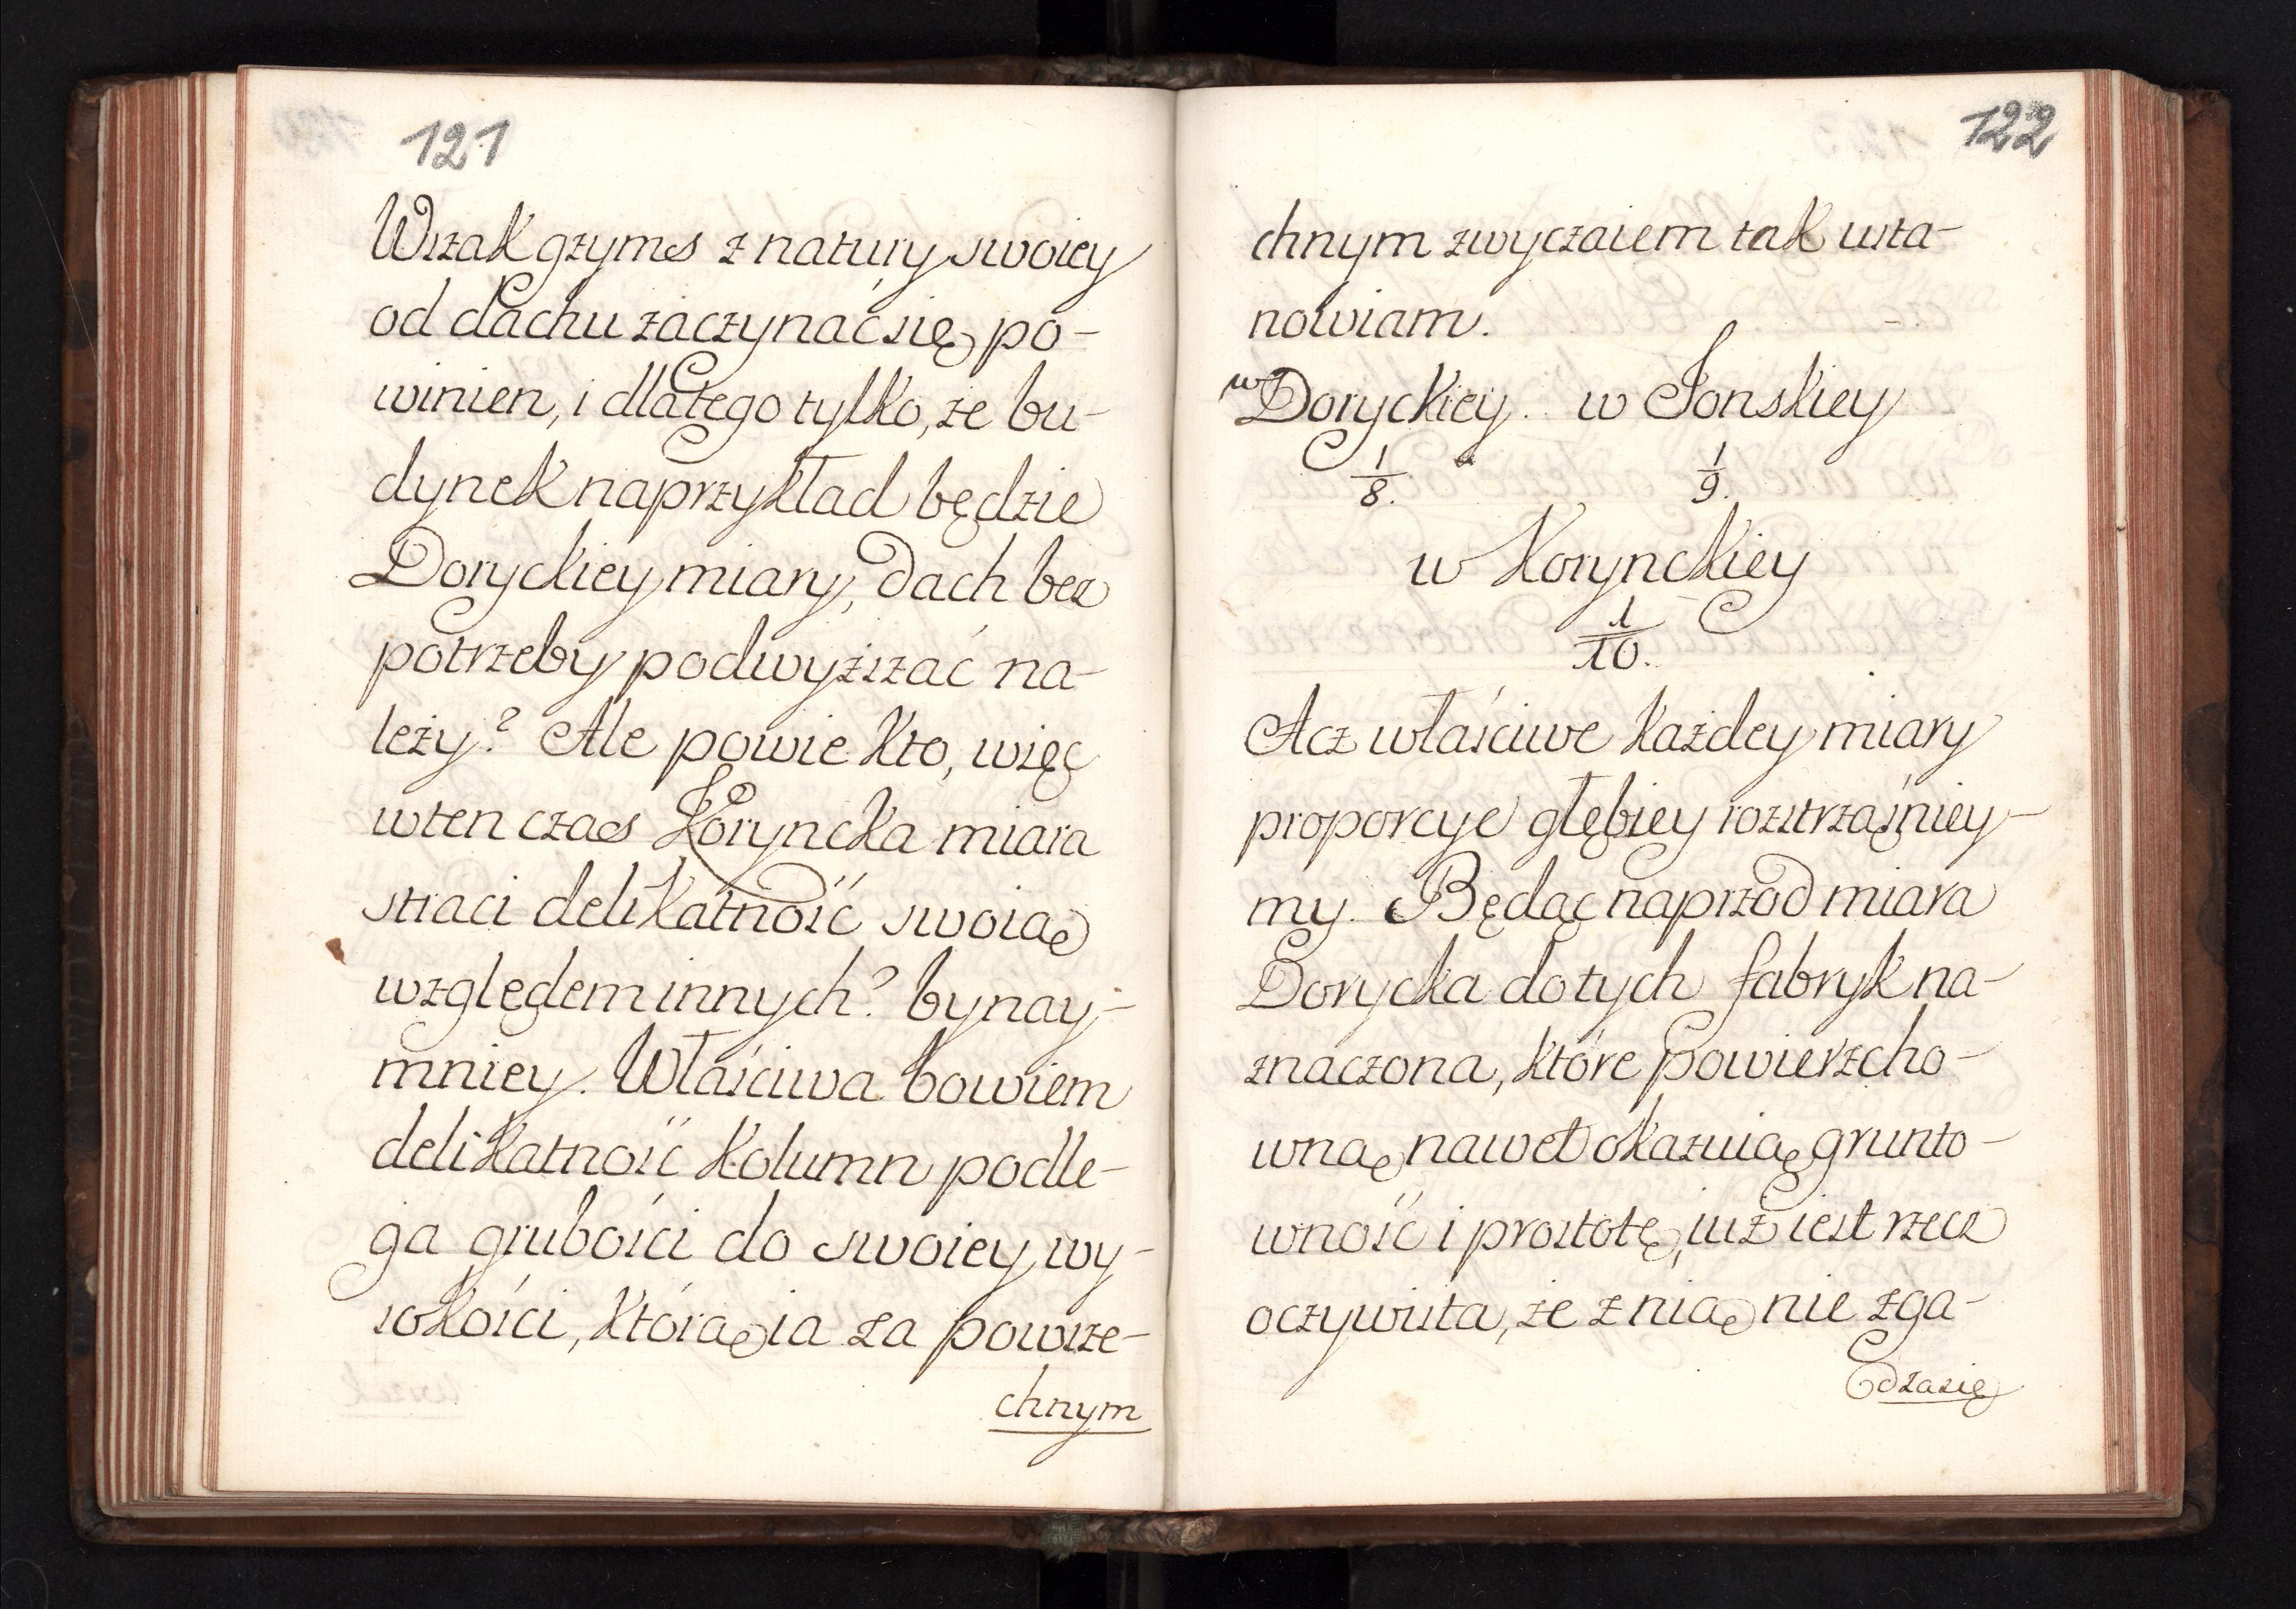 121
Wszak gzyms z natury swoiey
od dachu zaczynać się po-
winien, i dlatego tylko, że bu-
dynek naprzykład będzie
Doryckiey miary, dach bez
potrzeby podwyższać na-
leży? Ale powie kto, więc
wten czas Koryncka miara
straci delikatność swoią
względem innych? bynay-
mniey. Właściwa bowiem
delikatność kolumn podle-
ga grubości do swoiey wy-
sokości, którą ia za powsze-
chnym
122
chnym zwyczaiem tak usta-
nowiam.
w Doryckiey. w Jonskiey
1/8. 1/9.
w Korynckiey
1/10.
Acz właściwe każdey miary
proporcye głębiey rozstrząśniey-
my. Będąc naprzód miara
Dorycka do tych fabryk na-
znaczona, które powierzcho-
wną nawet okazuią grunto-
wność i prostotę, iuż iest rzecz
oczywista, że z nią nie zga-
dza się